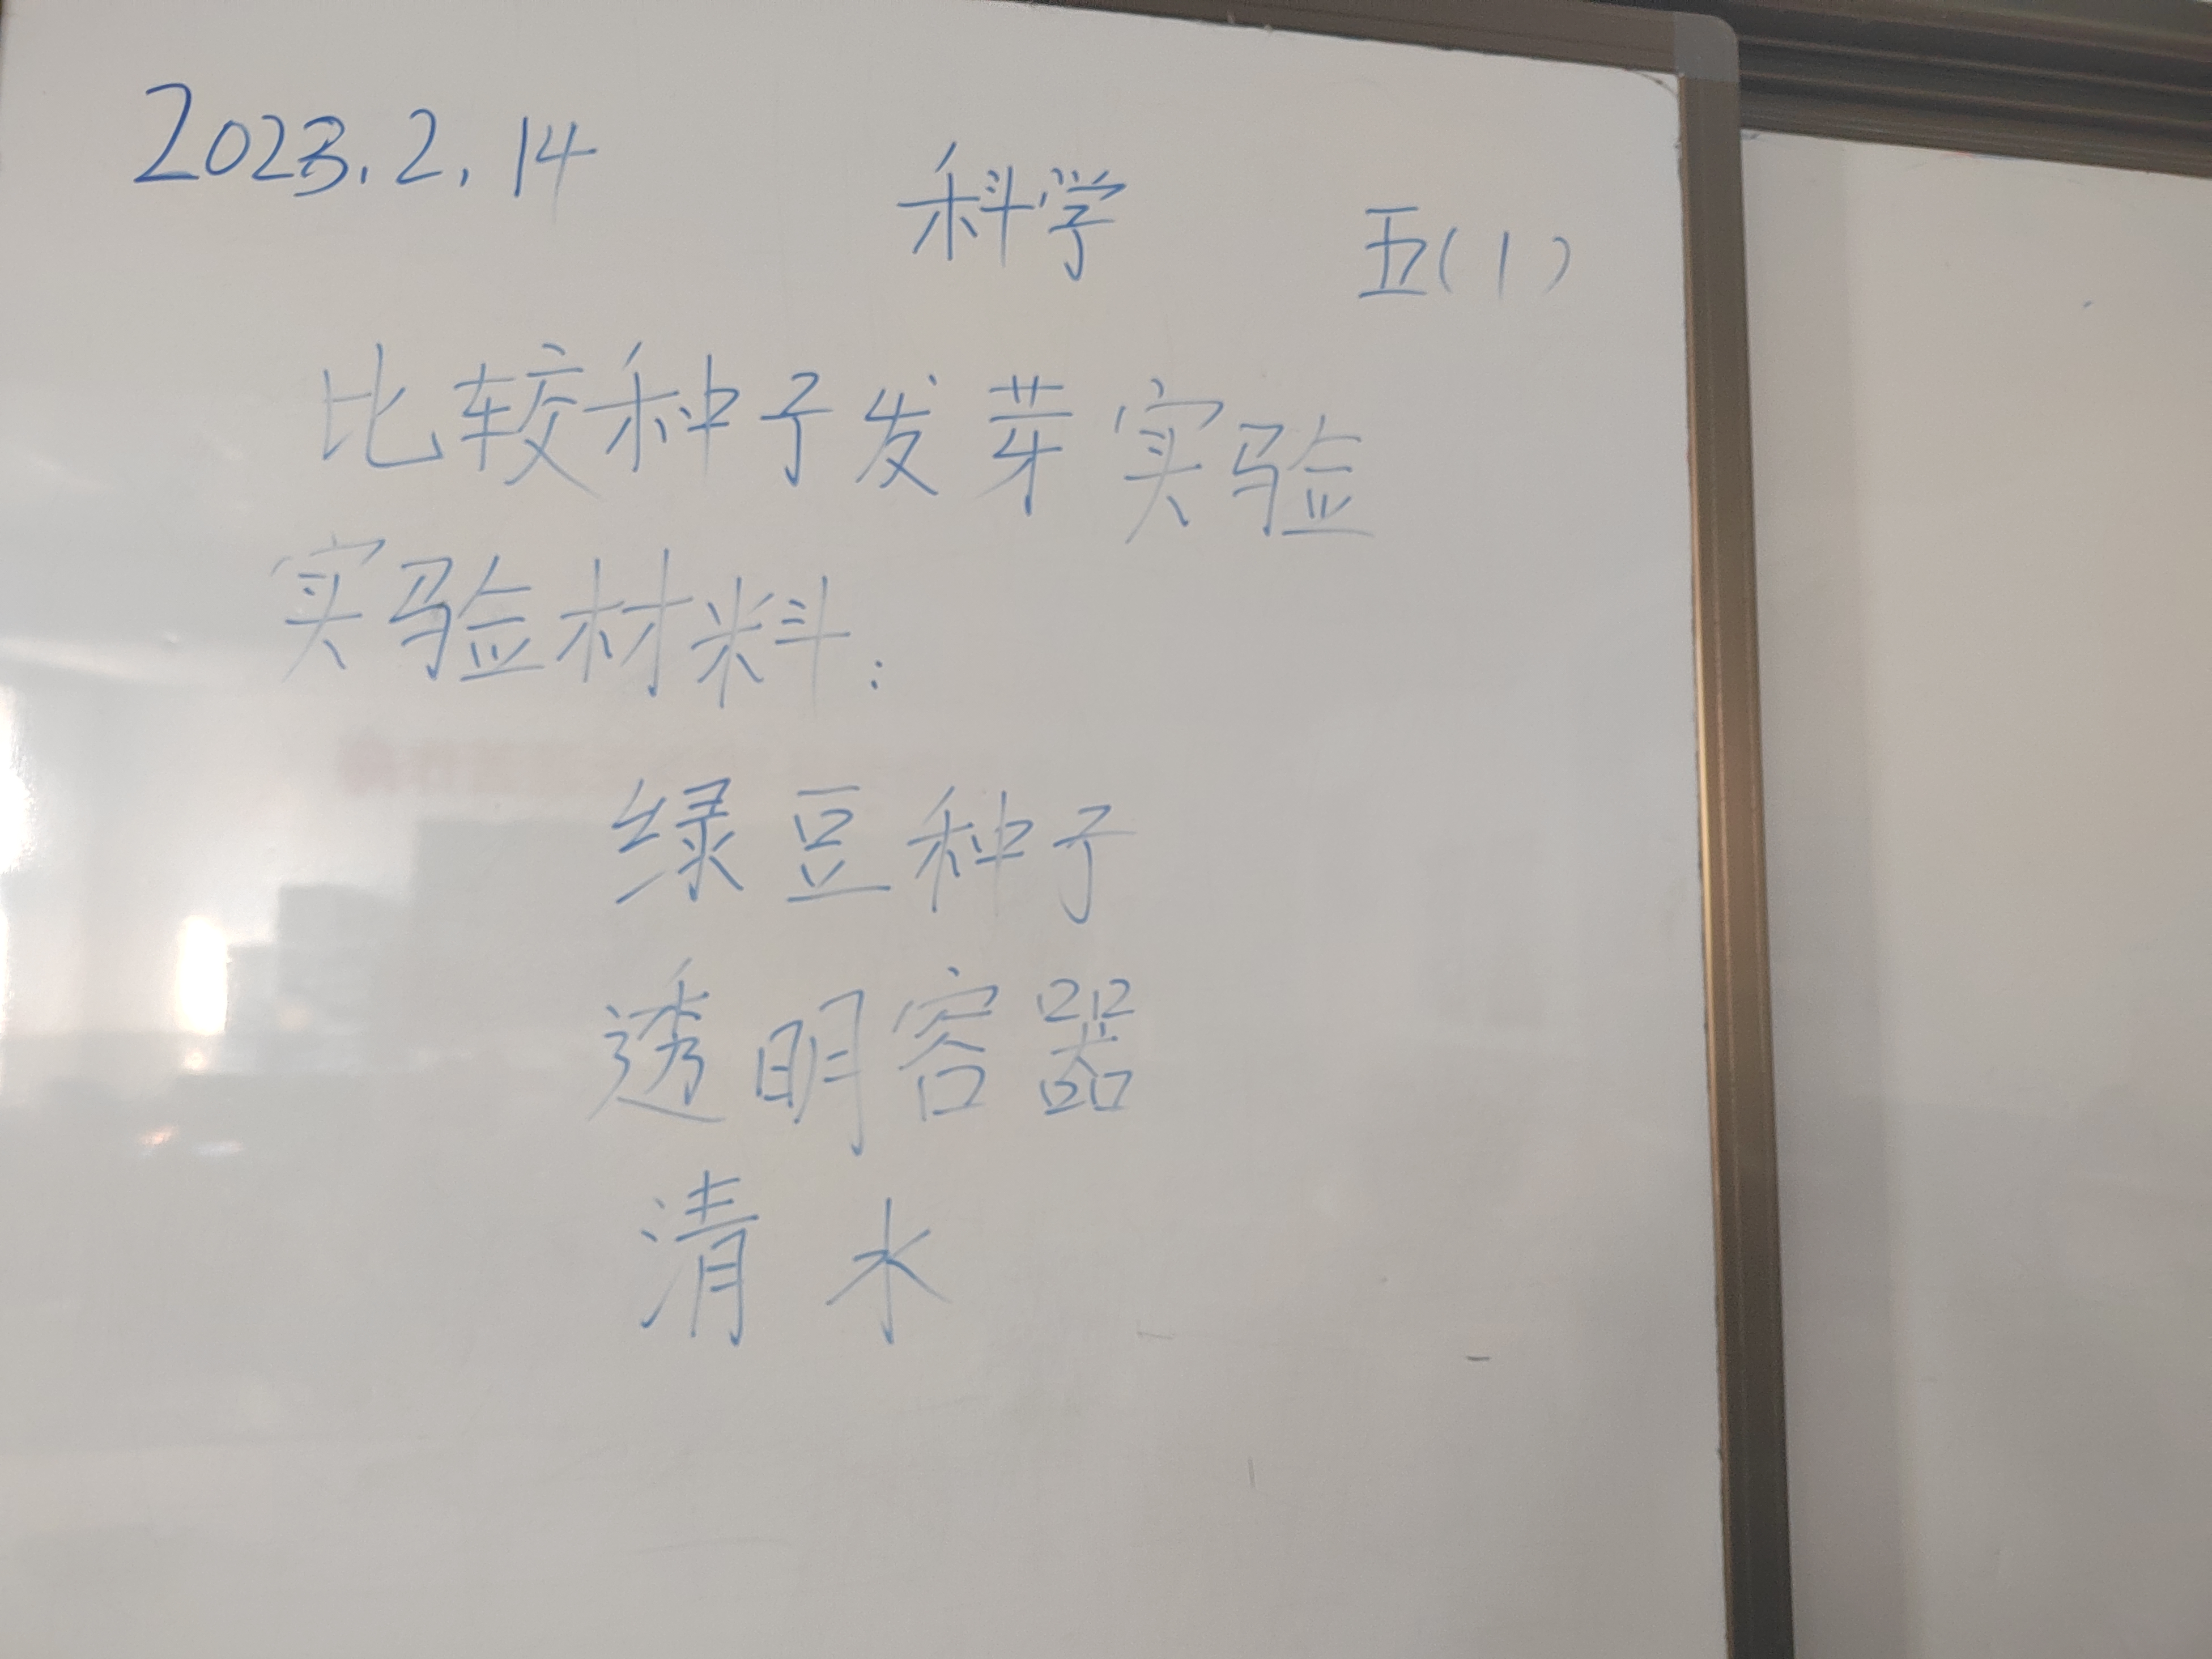 2023.2.14 科学 五(1)
比较种子发芽实验
实验材料:
绿豆种子
透明容器
清水